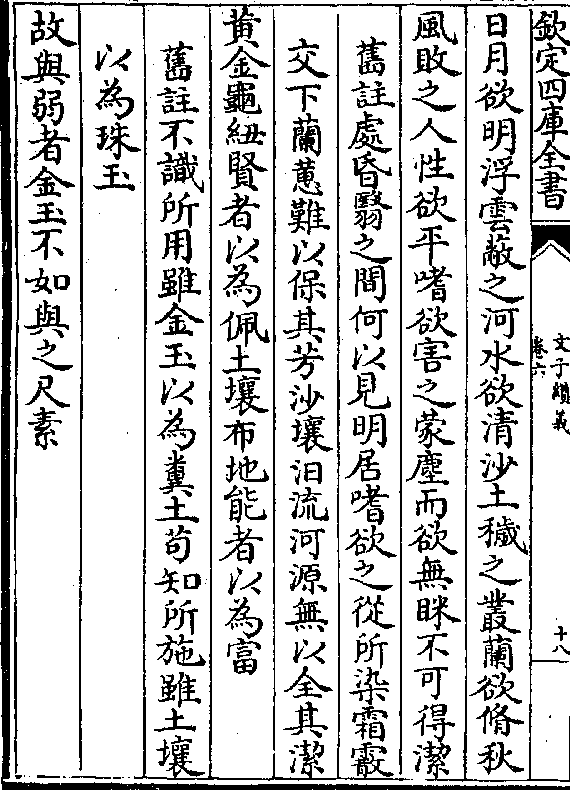 欽定四庫全書
文子纘義
卷六
十八
日月欲明浮雲蔽之河水欲清沙土穢之叢蘭欲脩秋
風敗之人性欲平嗜欲害之蒙塵而欲無眯不可得潔
舊註處昏翳之間何以見明居嗜欲之從所染霜霰
交下蘭蕙難以保其芳沙壤汨流河源無以全其潔
黄金龜紐賢者以為佩土壤布地能者以為富
舊註不識所用雖金玉以為糞土苟知所施雖土壤
以為珠玉
故與弱者金玉不如與之尺素